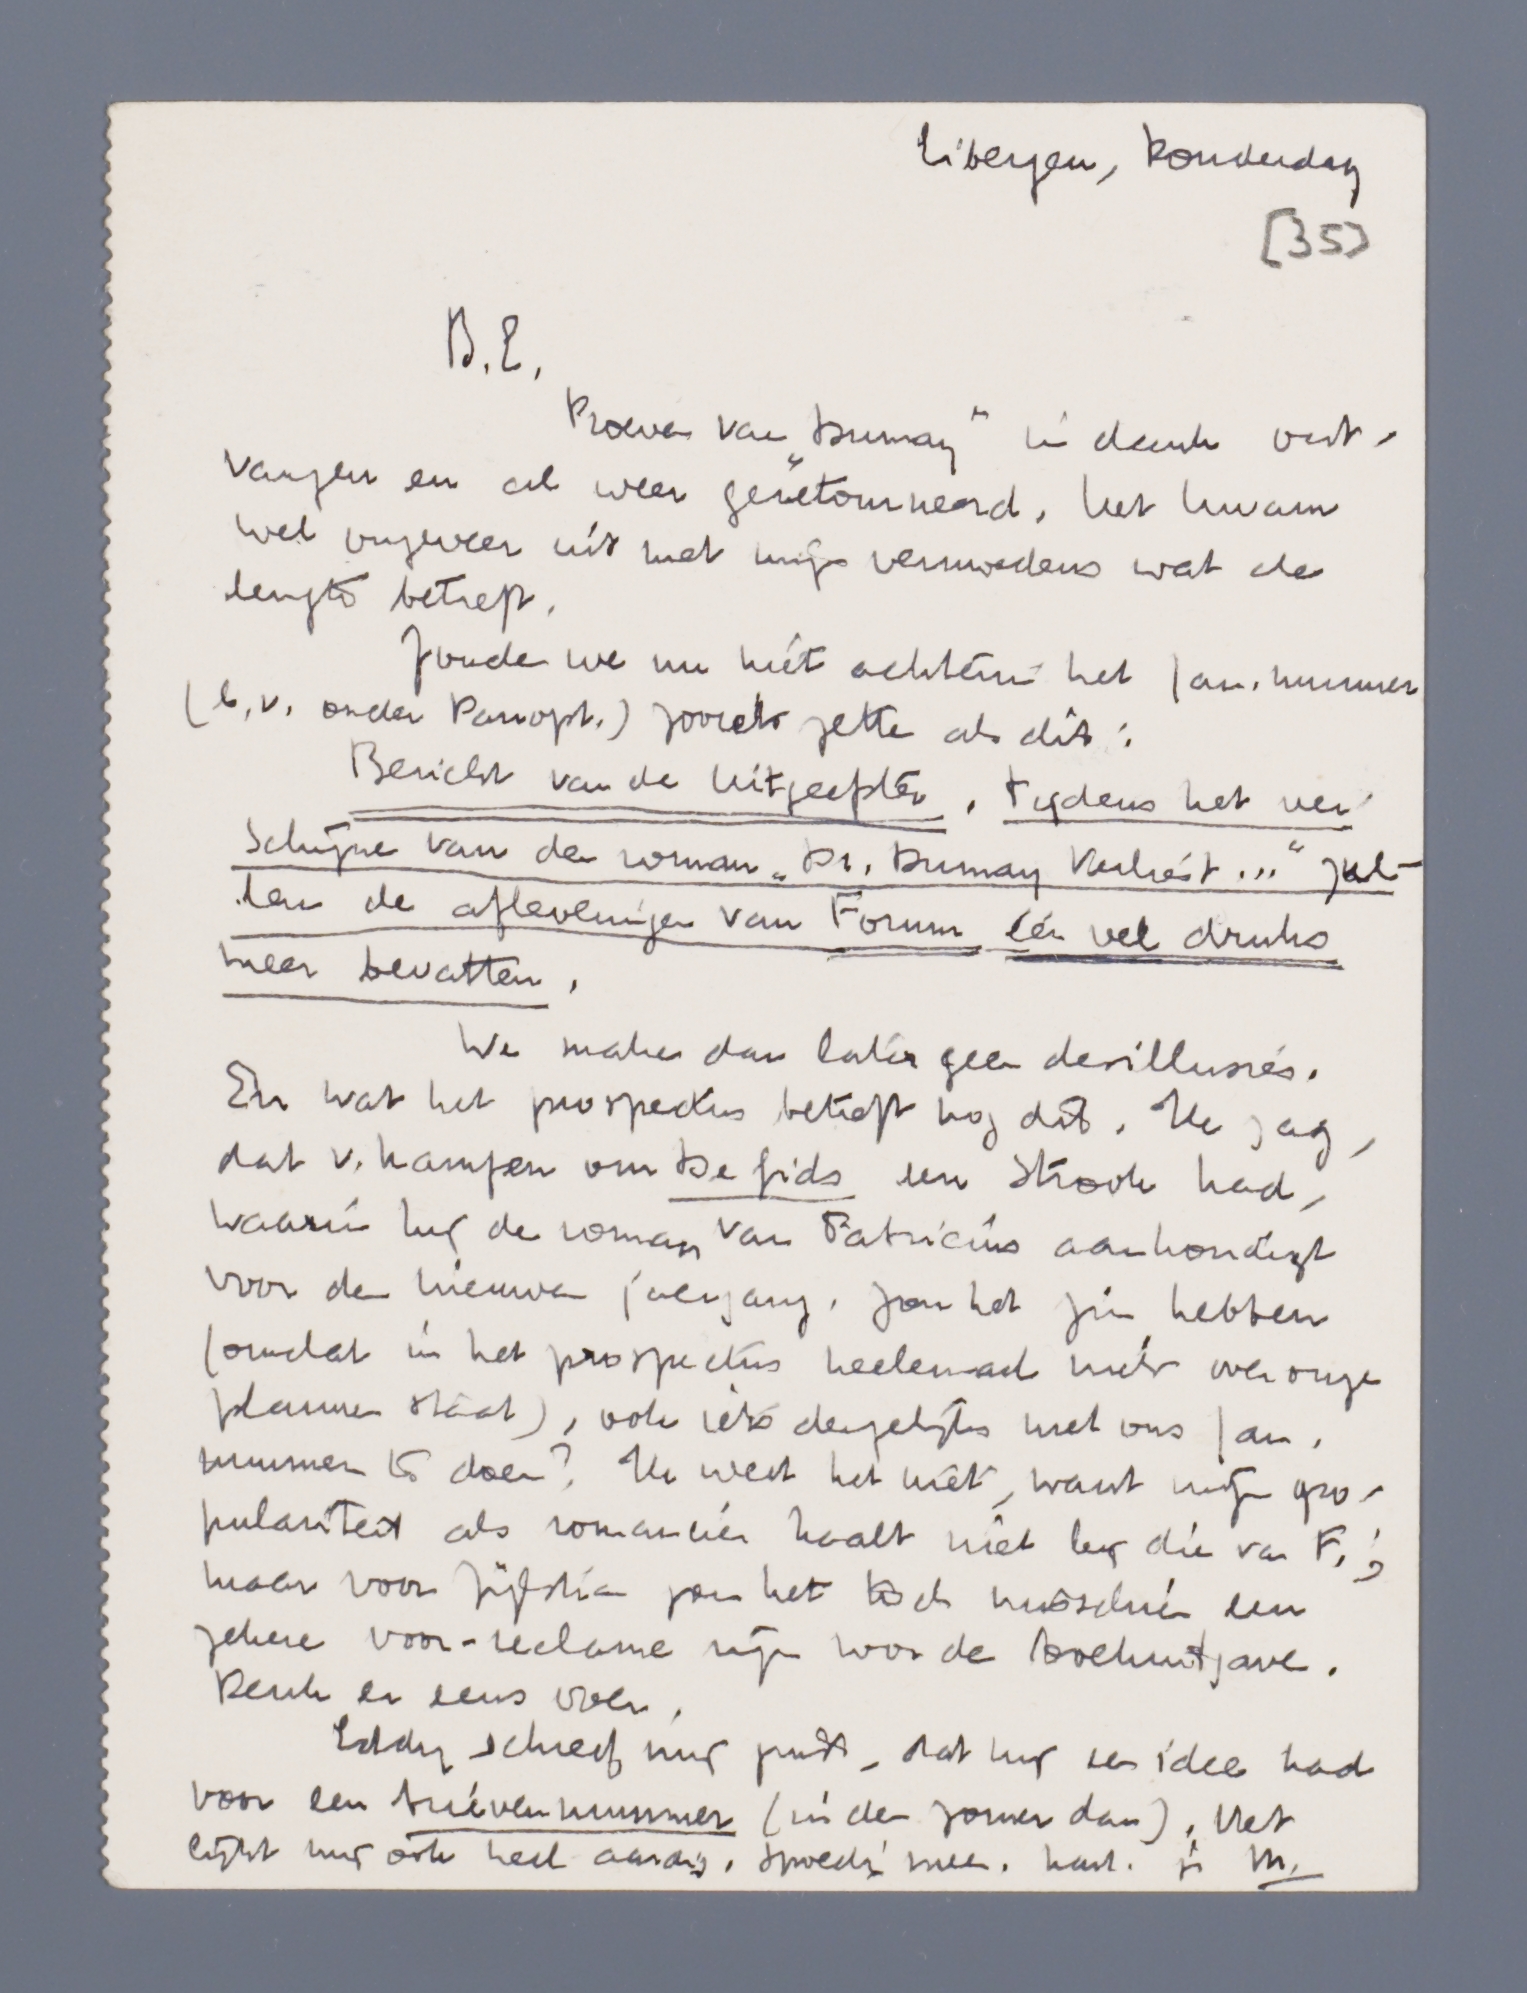 Eibergen, Donderdag
[35]
B.E.,
Proeven van „Dumay" in dank ont-
vangen en al weer geretourneerd. Het kwam
wel ongeveer uit met mijn vermoedens wat de
lengte betreft.
Zouden we nu niet achterin het Jan. nummer
(b.v. onder Panopt.) zooiets zetten als dit:
Bericht van de Uitgeefster. Tijdens het ver-
schijnen van den roman „Dr. Dumay Verliest..." zul-
len de afleveringen van Forum één vel druks
meer bevatten.
We maken dan later geen desillusies.
En wat het prospectus betreft nog dit. Ik zag,
dat v. Kampen om De Gids een strook had,
waarin hij de roman van Fabricius aankondigt
voor den nieuwen jaargang. Zou het zin hebben
(omdat in het prospectus heelemaal niets over onze
plannen staat), ook iets dergelijks met ons Jan.
nummer te doen? Ik weet het niet, want mijn po-
pulariteit als romancier haalt niet bij die van F.;
maar voor Zijlstra zou het toch misschien een
zekere voor-reclame zijn voor de boekuitgave.
Denk er eens over.
Eddy schreef mij juist, dat hij een idee had
voor een brievennummer (in den zomer dan). Het
lijkt mij ook heel aardig. Spoedig meer. hart. je M.